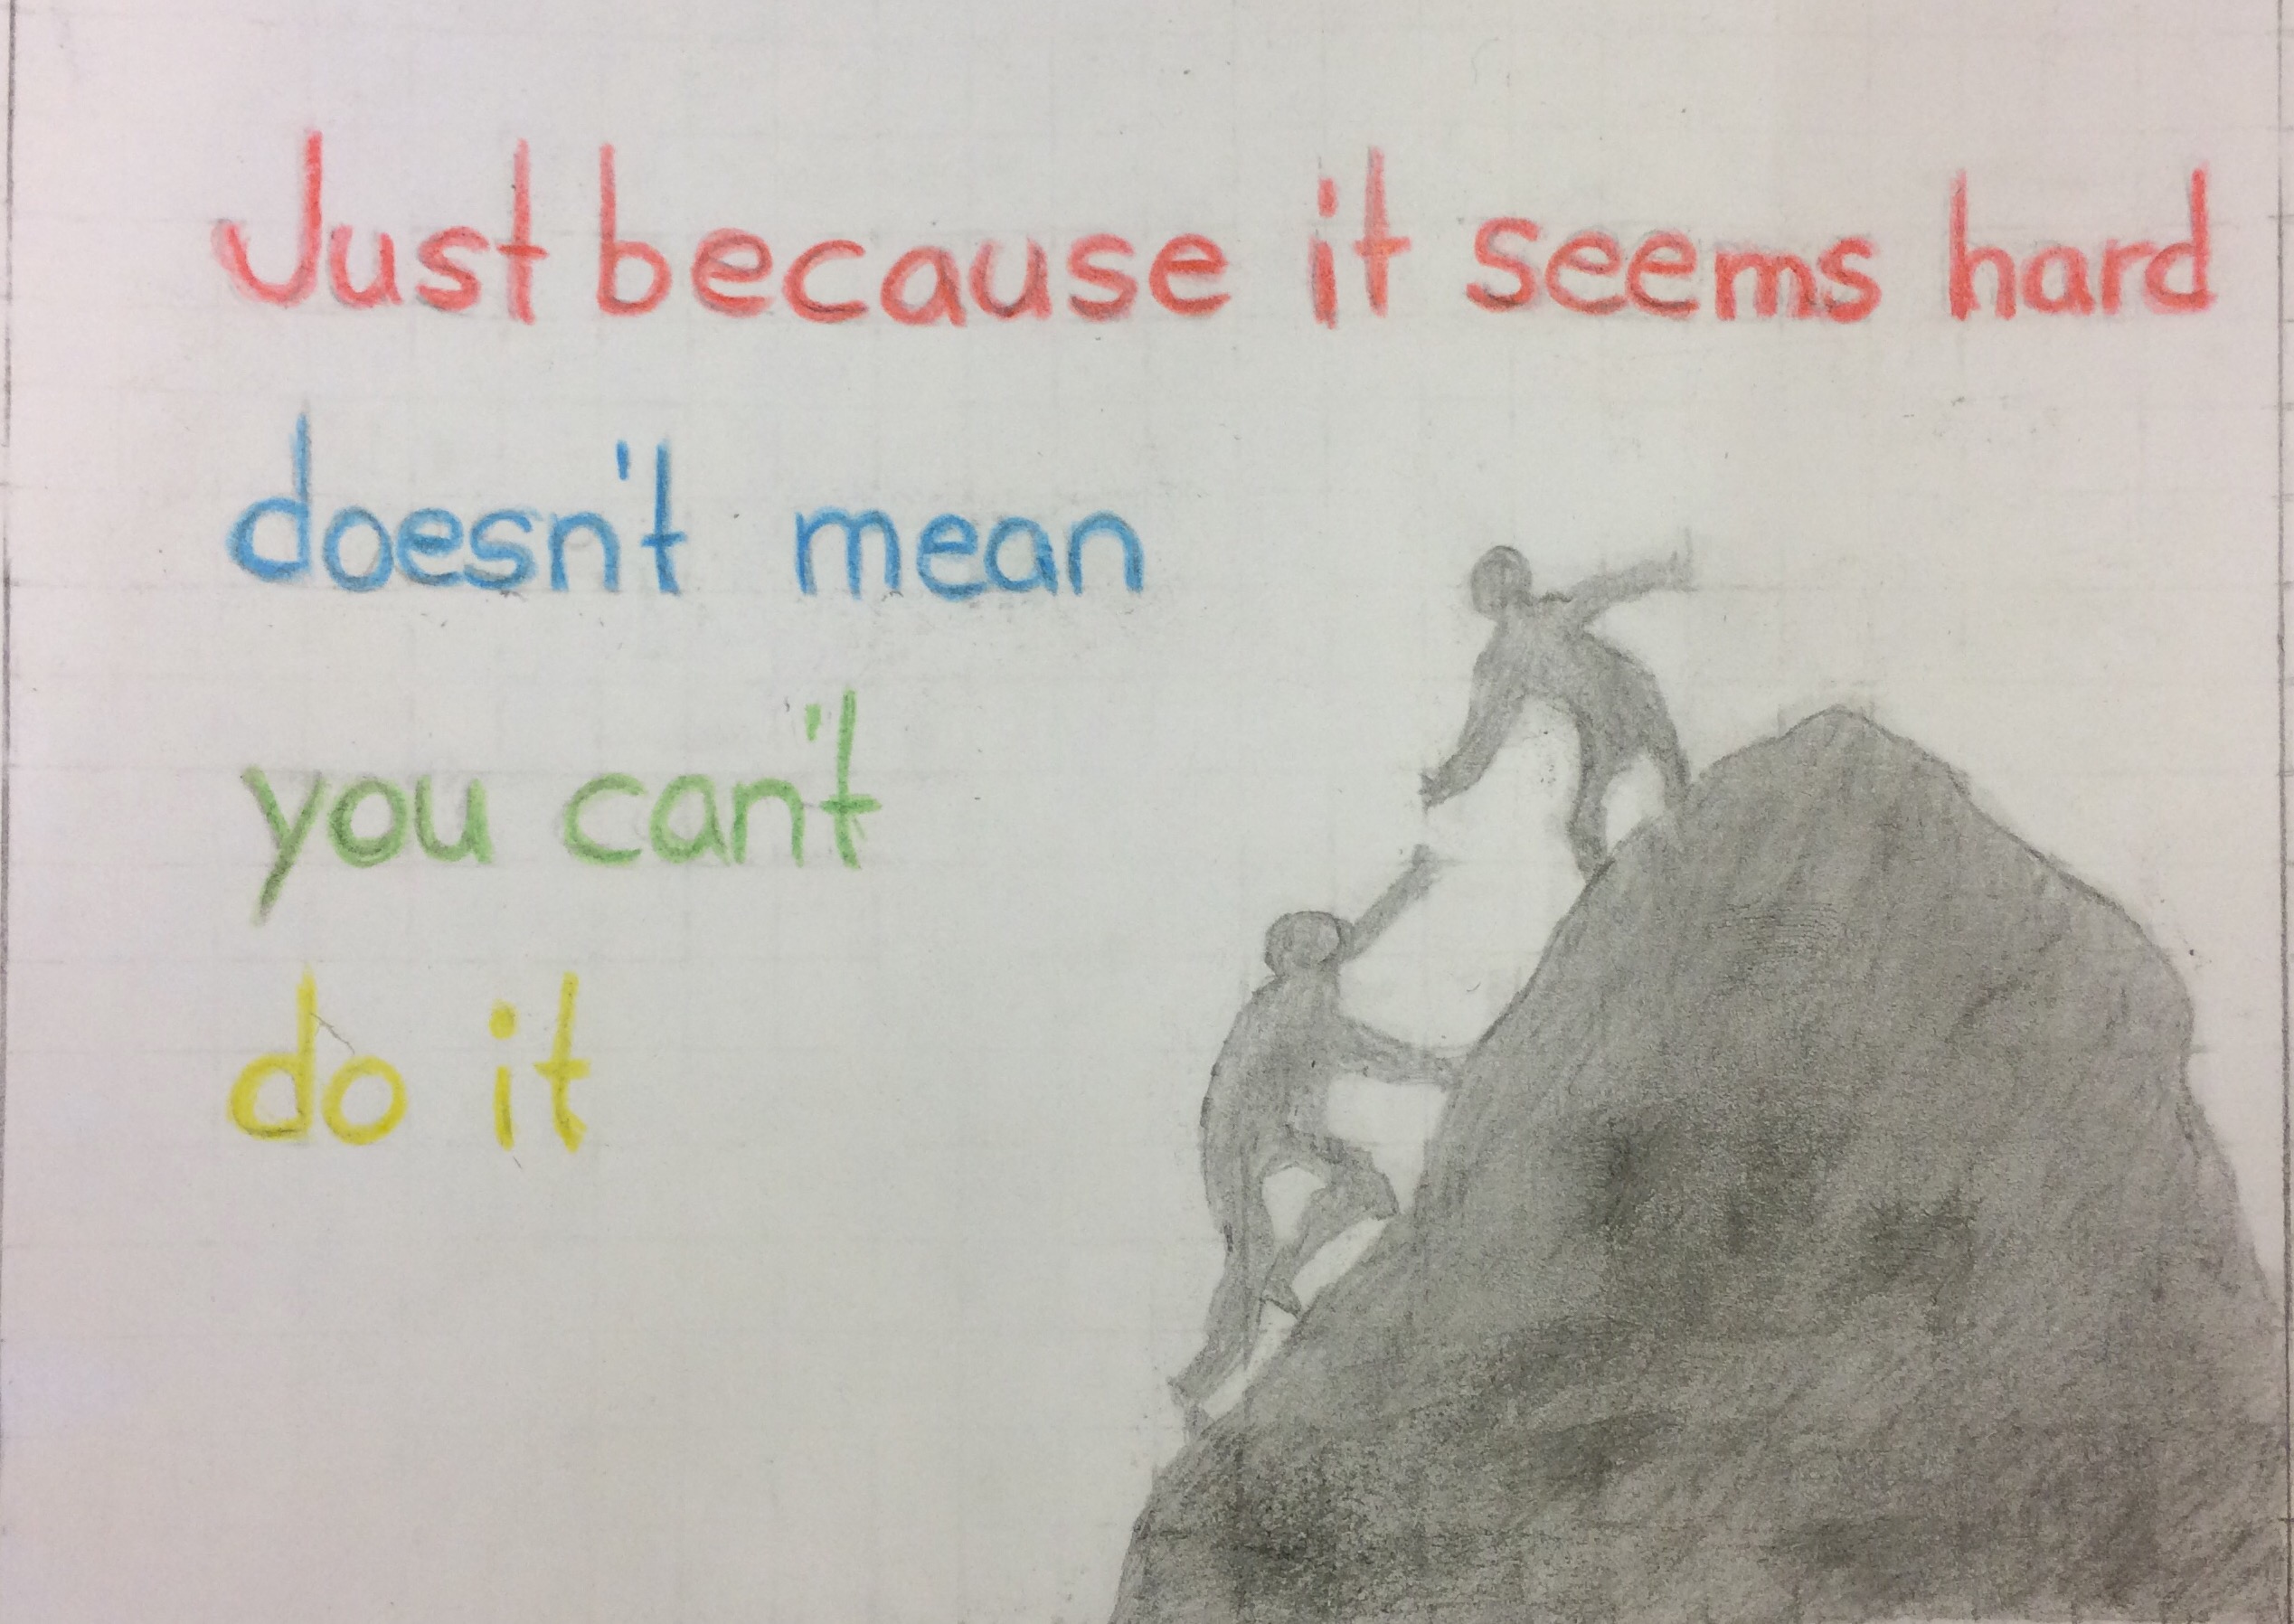 Just because it seems hard
doesn't mean
you can't
do it